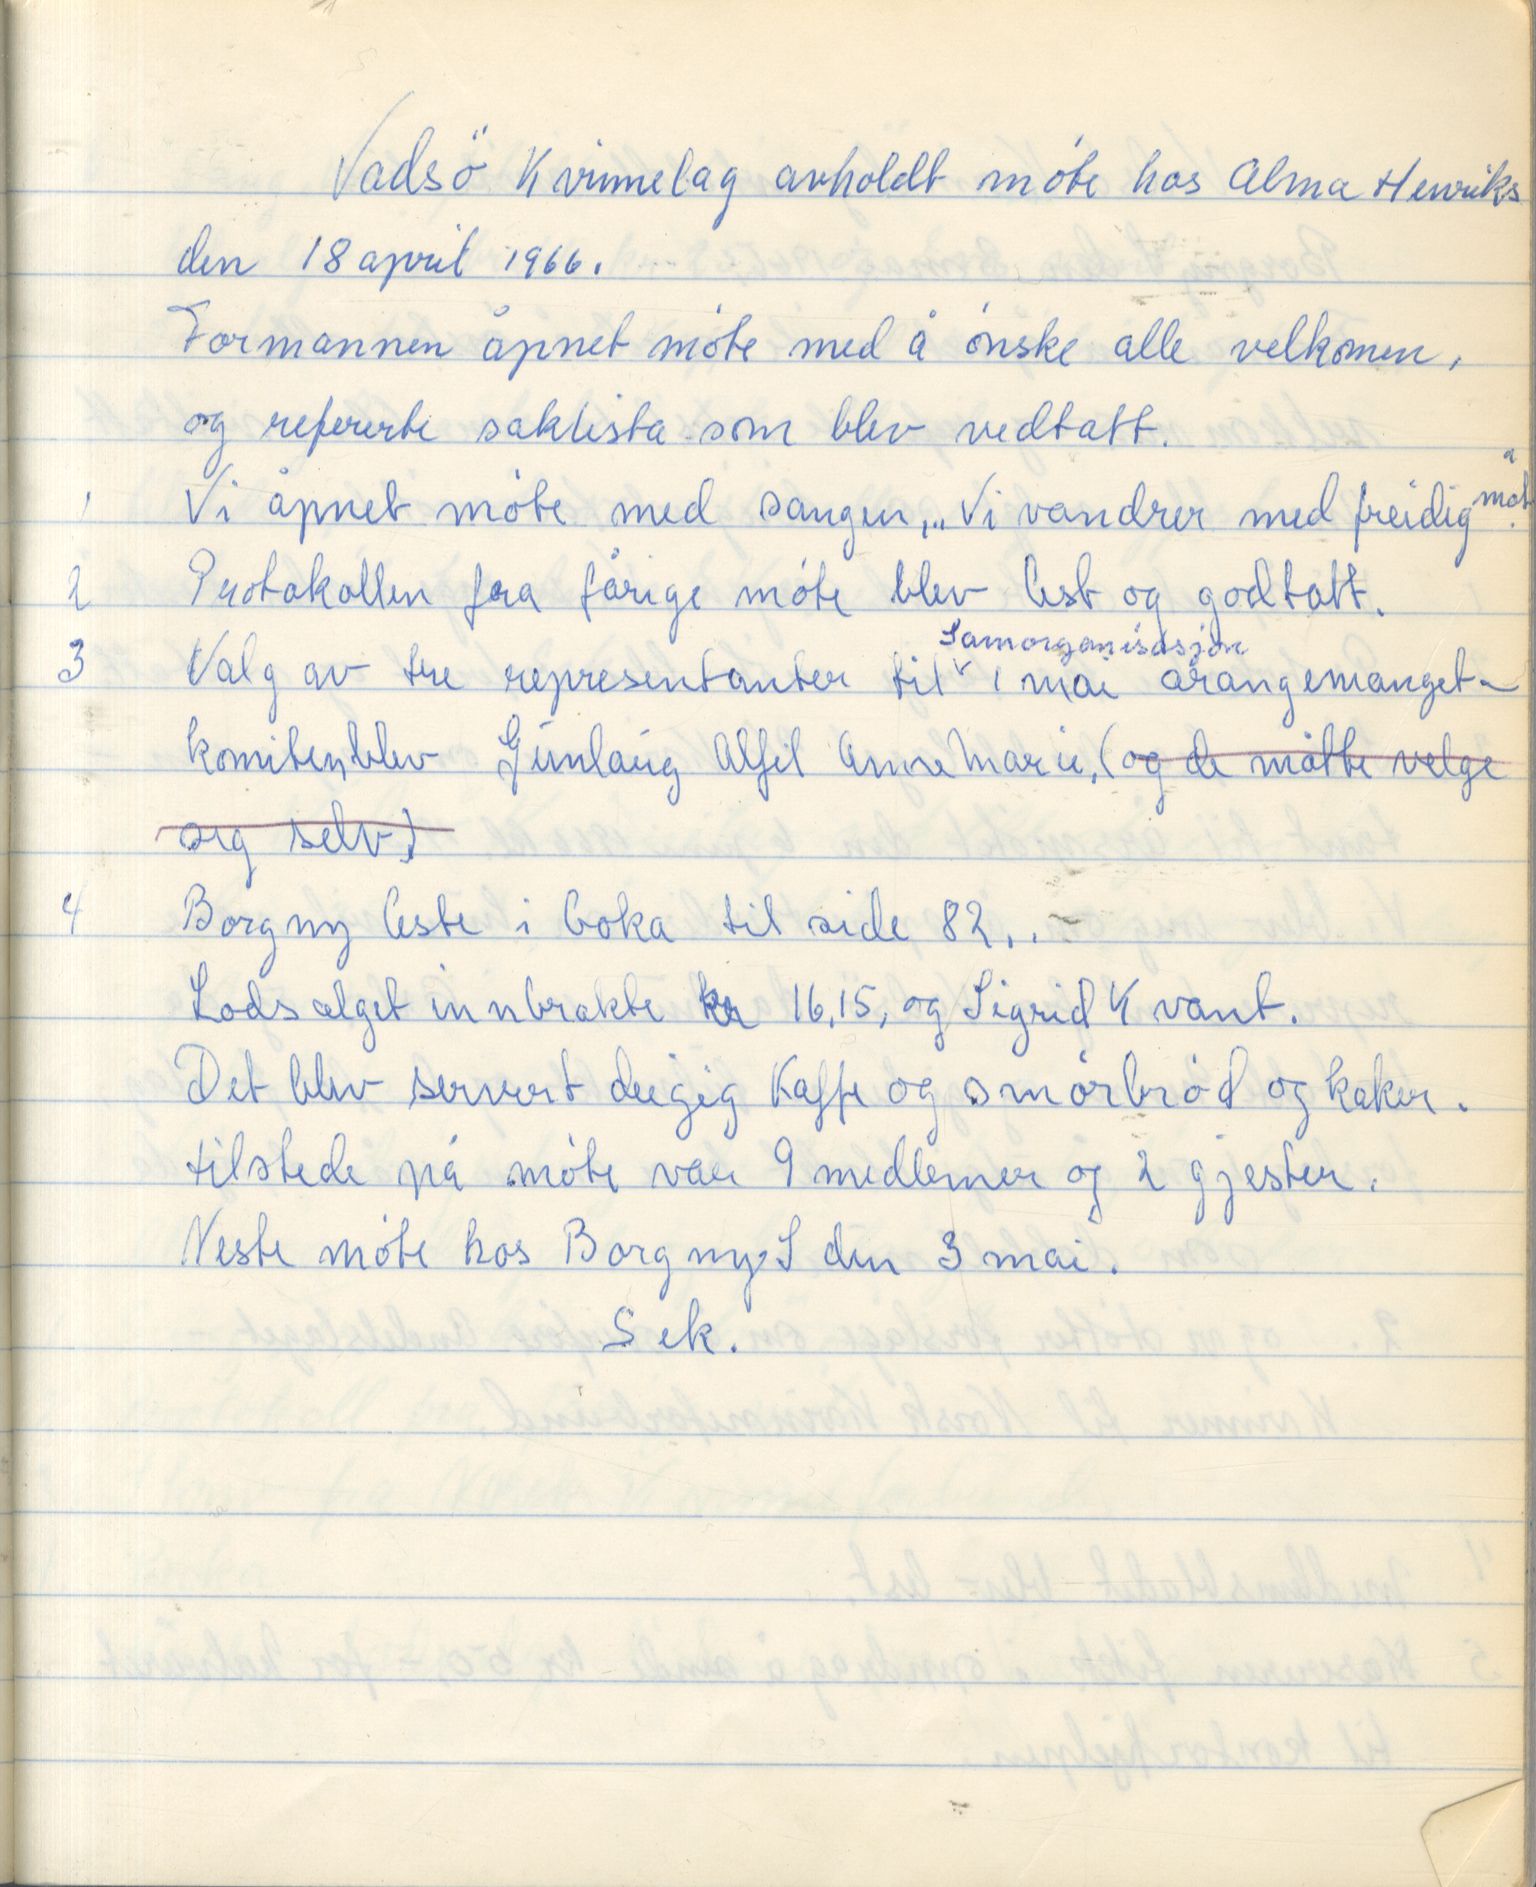 Vadsö Kvinnelag avholdt möte hos Alma Henriks
den 18 april 1966.
Formannen åpnet möte med å önske alle velkomen,
og refererte saklista som blev vedtatt.
1 Vi åpnet möte med sangen, „Vi vandrer med freidig mot"
2 Protokollen fra fårige möte blev lest og godtatt.
Samorganisasjon
3 Valg av tre representanter til 1 mai arangemanget-
komiteen, blev Gunlaug Alfil Anne Marie, (og de måtte velge
seg selv)
4 Borgny leste i boka til side 82..
Lodsalget innbrakte kr 16,15, og Sigrid K vant.
Det blev servert deigig Kaffe og smörbröd og kaker.
tilstede på möte var 9 medlemer og 2 gjester.
Neste möte hos Borgny S den 3 mai.
Sek.